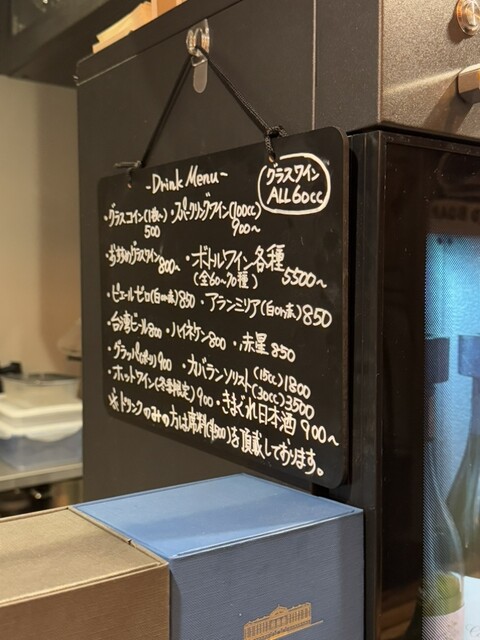 -Drink Menu-
グラスワイン
ALL60cc
・グラスコイン(1枚〜)・スパークリングワイン(100cc)
500 900〜
・おすすめグラスワイン800〜 ・ボトルワイン各種
(全60〜70種) 5500〜
・ピエールゼロ(白or赤)850 ・アランミリア(白or赤)850
・台湾ビール800 ・ハイネケン800 ・赤星850
・グラッパ 900 ・カバランソリスト(15cc)1800
(30cc)3500
・ホットワイン(冬季限定)900 ・きまぐれ日本酒900〜
※ドリンクのみの方は席料(¥500)を頂戴しております。